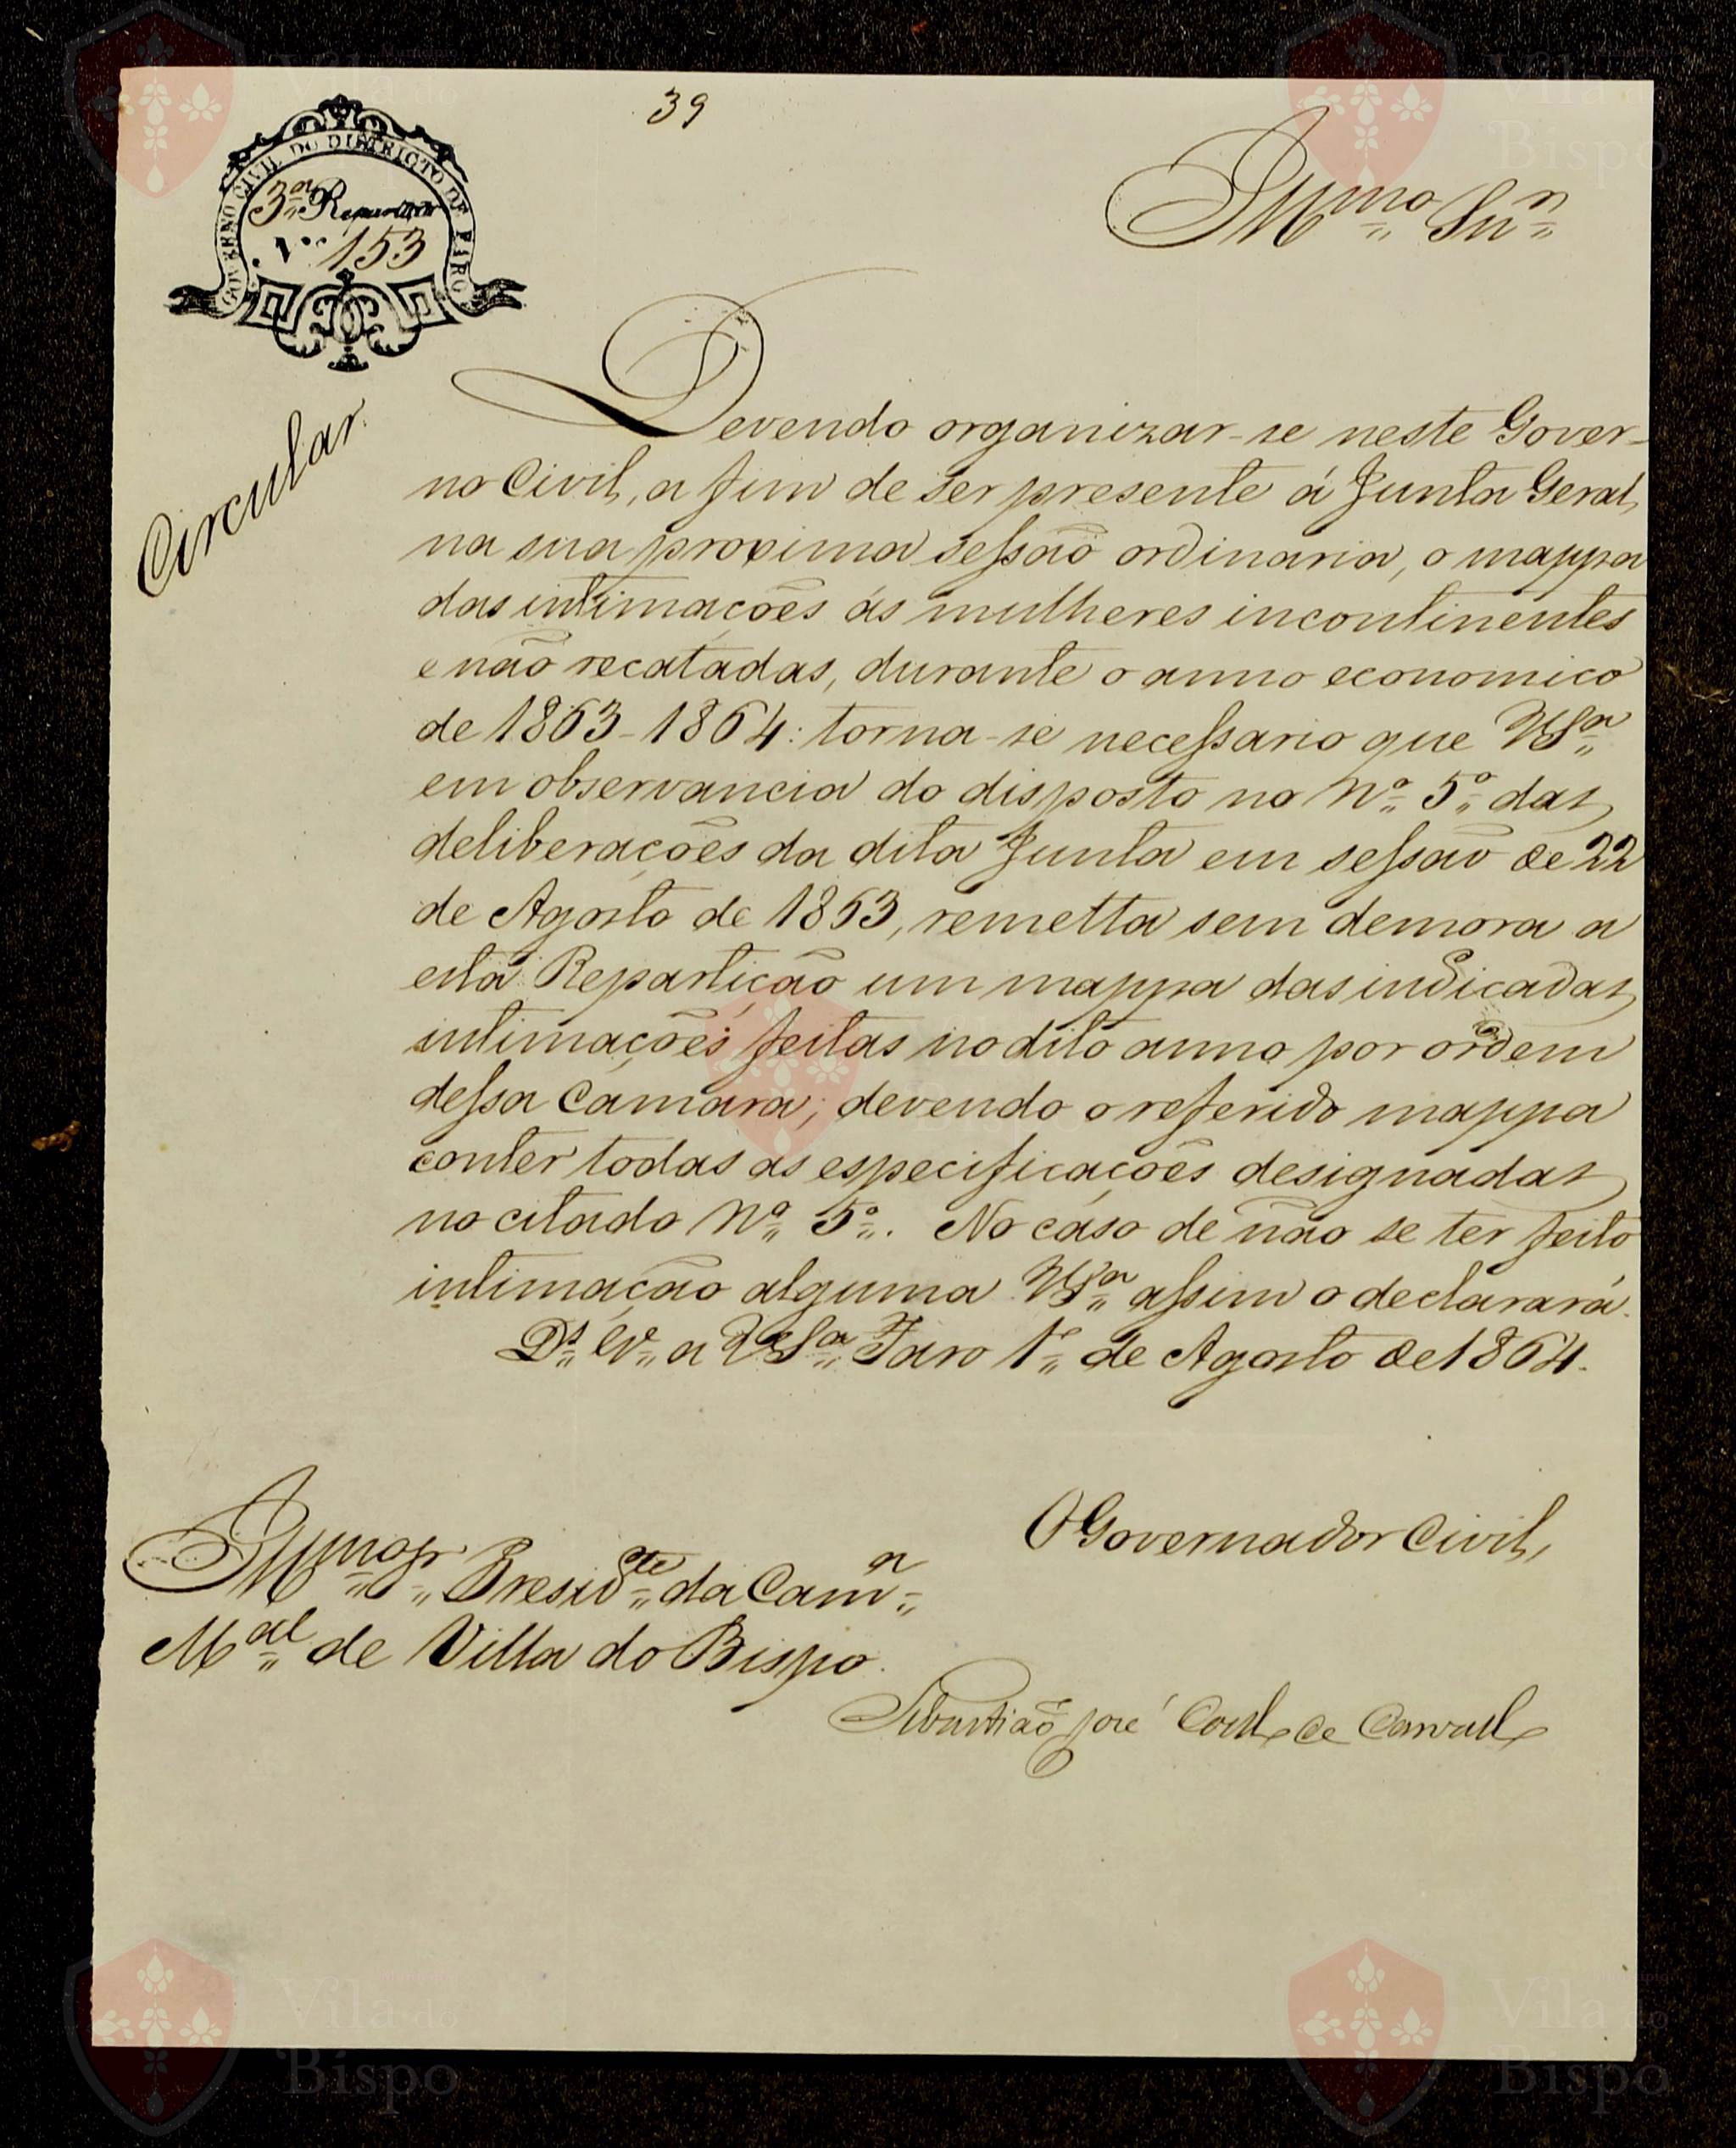 39
GOVERNO CIVIL DO DISTRICTO DE FARO
3ª Repartição
Nº 153
Illmo Snr
Circular
Devendo organizar-se neste Gover-
no Civil, a fim de ser presente á Junta Geral,
na sua proxima sessão ordinaria, o mappa
das intimações ás mulheres incontinentes
e não recatadas, durante o anno economico
de 1863-1864: torna-se necessario que VSª
em observancia do disposto no Nº 5º das
deliberações da dita Junta em sessão de 22
de Agosto de 1853, remetta sem demora a
esta Repartição um mappa das indicadas
intimações feitas no dito anno por ordem
dessa Camara; devendo o referido mappa
conter todas as especificações designadas
no citado Nº 5º. No caso de não se ter feito
intimação alguma VSª assim o declarará.
Ds Gde a VSª Faro 1º de Agosto de 1864.
O Governador Civil,
Illmo Sr Preside da Camª
Mal de Villa do Bispo.
Sebastião José Coelho de Carvalho
Vila do
Bispo
Vila do
Bispo
Vila do
Bispo
Vila do
Bispo